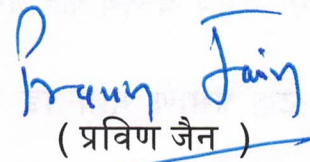 Pravin Jain
( प्रविण जैन )